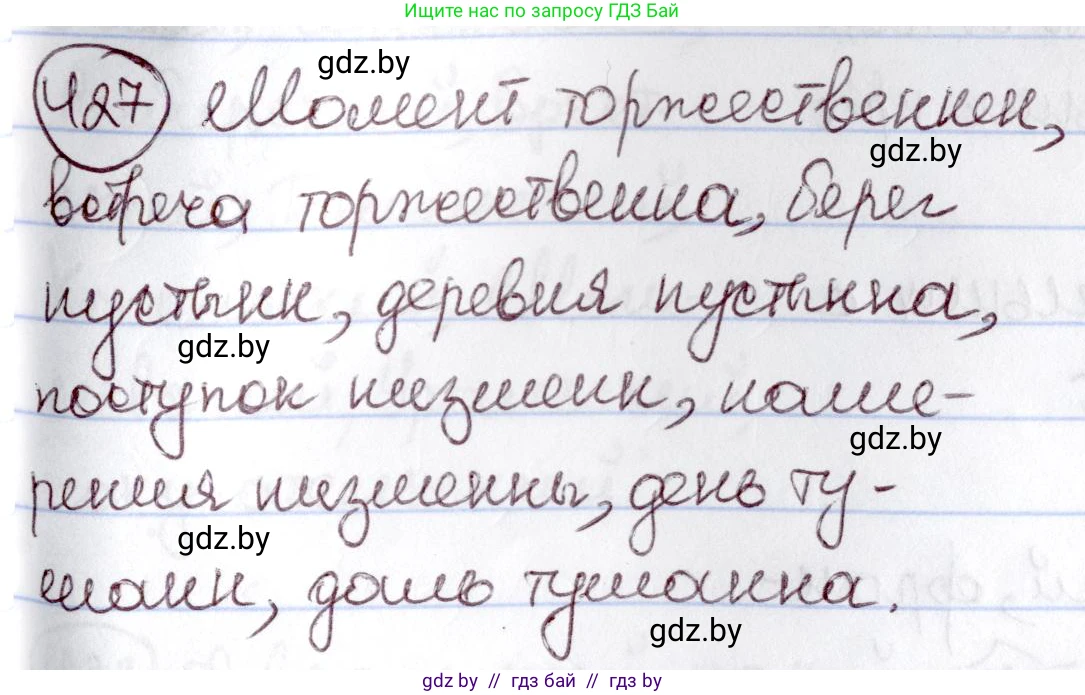 Ищите нас по запросу ГДЗ Бай
gdz.by
427 Момент торжественен,
gdz.by
встреча торжественна, берег
пустынн, деревня пустынна,
gdz.by
поступок низменн, наме-
gdz.by
рения низменны, день ту-
gdz.by
манн, даль туманна.
gdz.by
gdz.by // гдз бай // гдз by